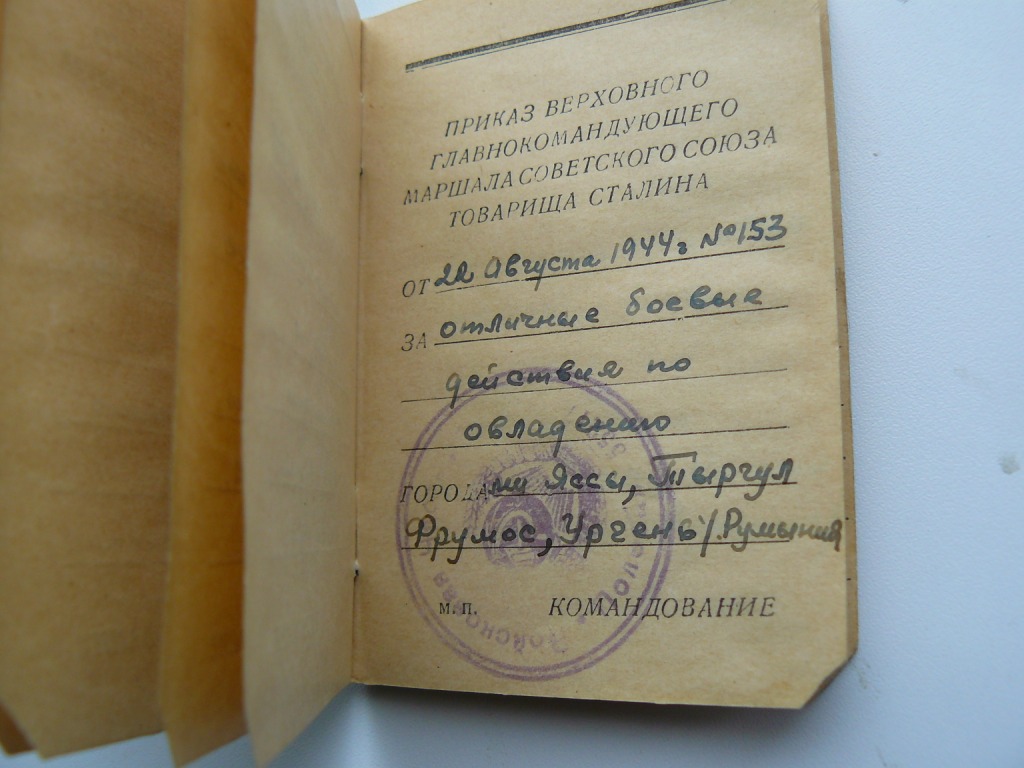 ПРИКАЗ ВЕРХОВНОГО
ГЛАВНОКОМАНДУЮЩЕГО
МАРШАЛА СОВЕТСКОГО СОЮЗА
ТОВАРИЩА СТАЛИНА
ОТ 22 Августа 1944 г №153
ЗА отличные боевые
действия по
овладению
ГОРОДАми Яссы, Тыргул
Фрумос, Унгень /.Румыния
М. П. КОМАНДОВАНИЕ